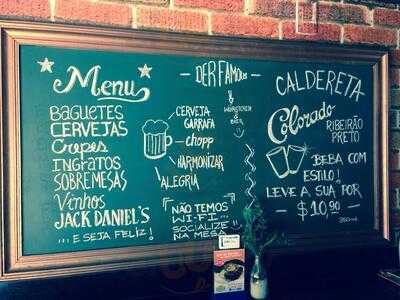 Menu
BAGUETES
CERVEJAS
Crepes
INGRATOS
SOBREMESAS
Vinhos
JACK DANIEL'S
... E SEJA FELIZ!
DER FAMOUS
WURSTCHEN
& BIER
CERVEJA
GARRAFA
chopp
HARMONIZAR
ALEGRIA
NÃO TEMOS
WI-FI...
SOCIALIZE
NA MESA
CALDERETA
Colorado
RIBEIRÃO
PRETO
BEBA COM
ESTILO!
LEVE A SUA POR
$10,90
350ml